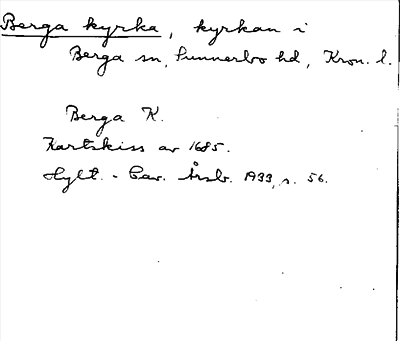 Berga kyrka, kyrkan i
Berga sn, Sunnerbo hd, Kron. l.
Berga K.
Kartskiss av 1685.
Hylt.-Cav. Årsb. 1933, s. 56.